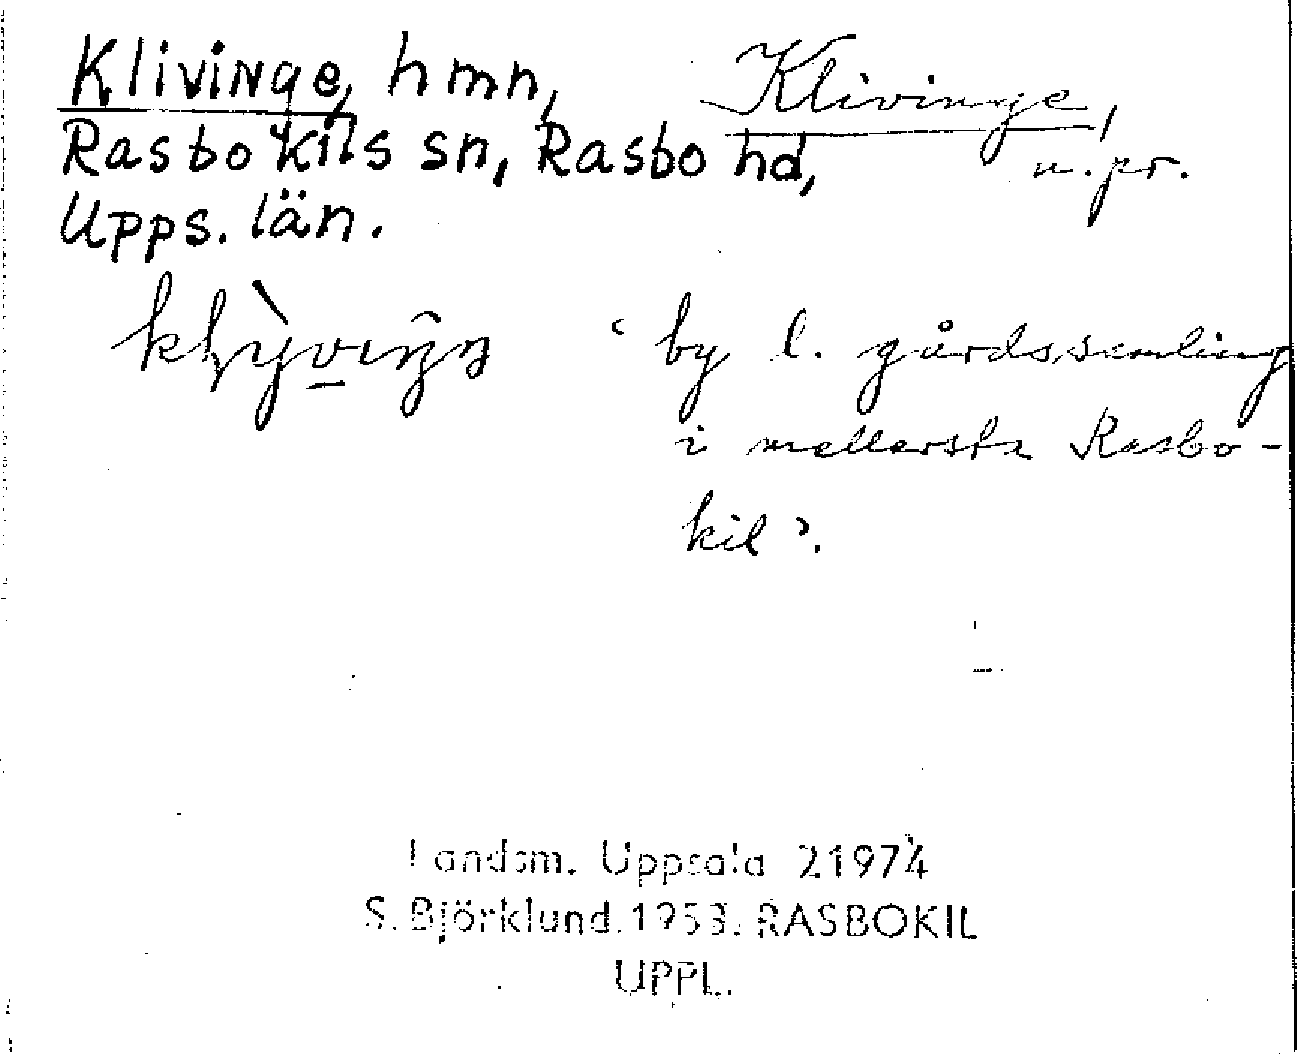 Klivinge, hmn,
Rasbokils sn, Rasbo hd,
Upps. län.
Klivinge,
n. pr.
‘by l. gårdssamling
i mellersta Rasbo-
kil’.
Landsm. Uppsala 21974
S. Björklund. 1953. RASBOKIL
UPPL.